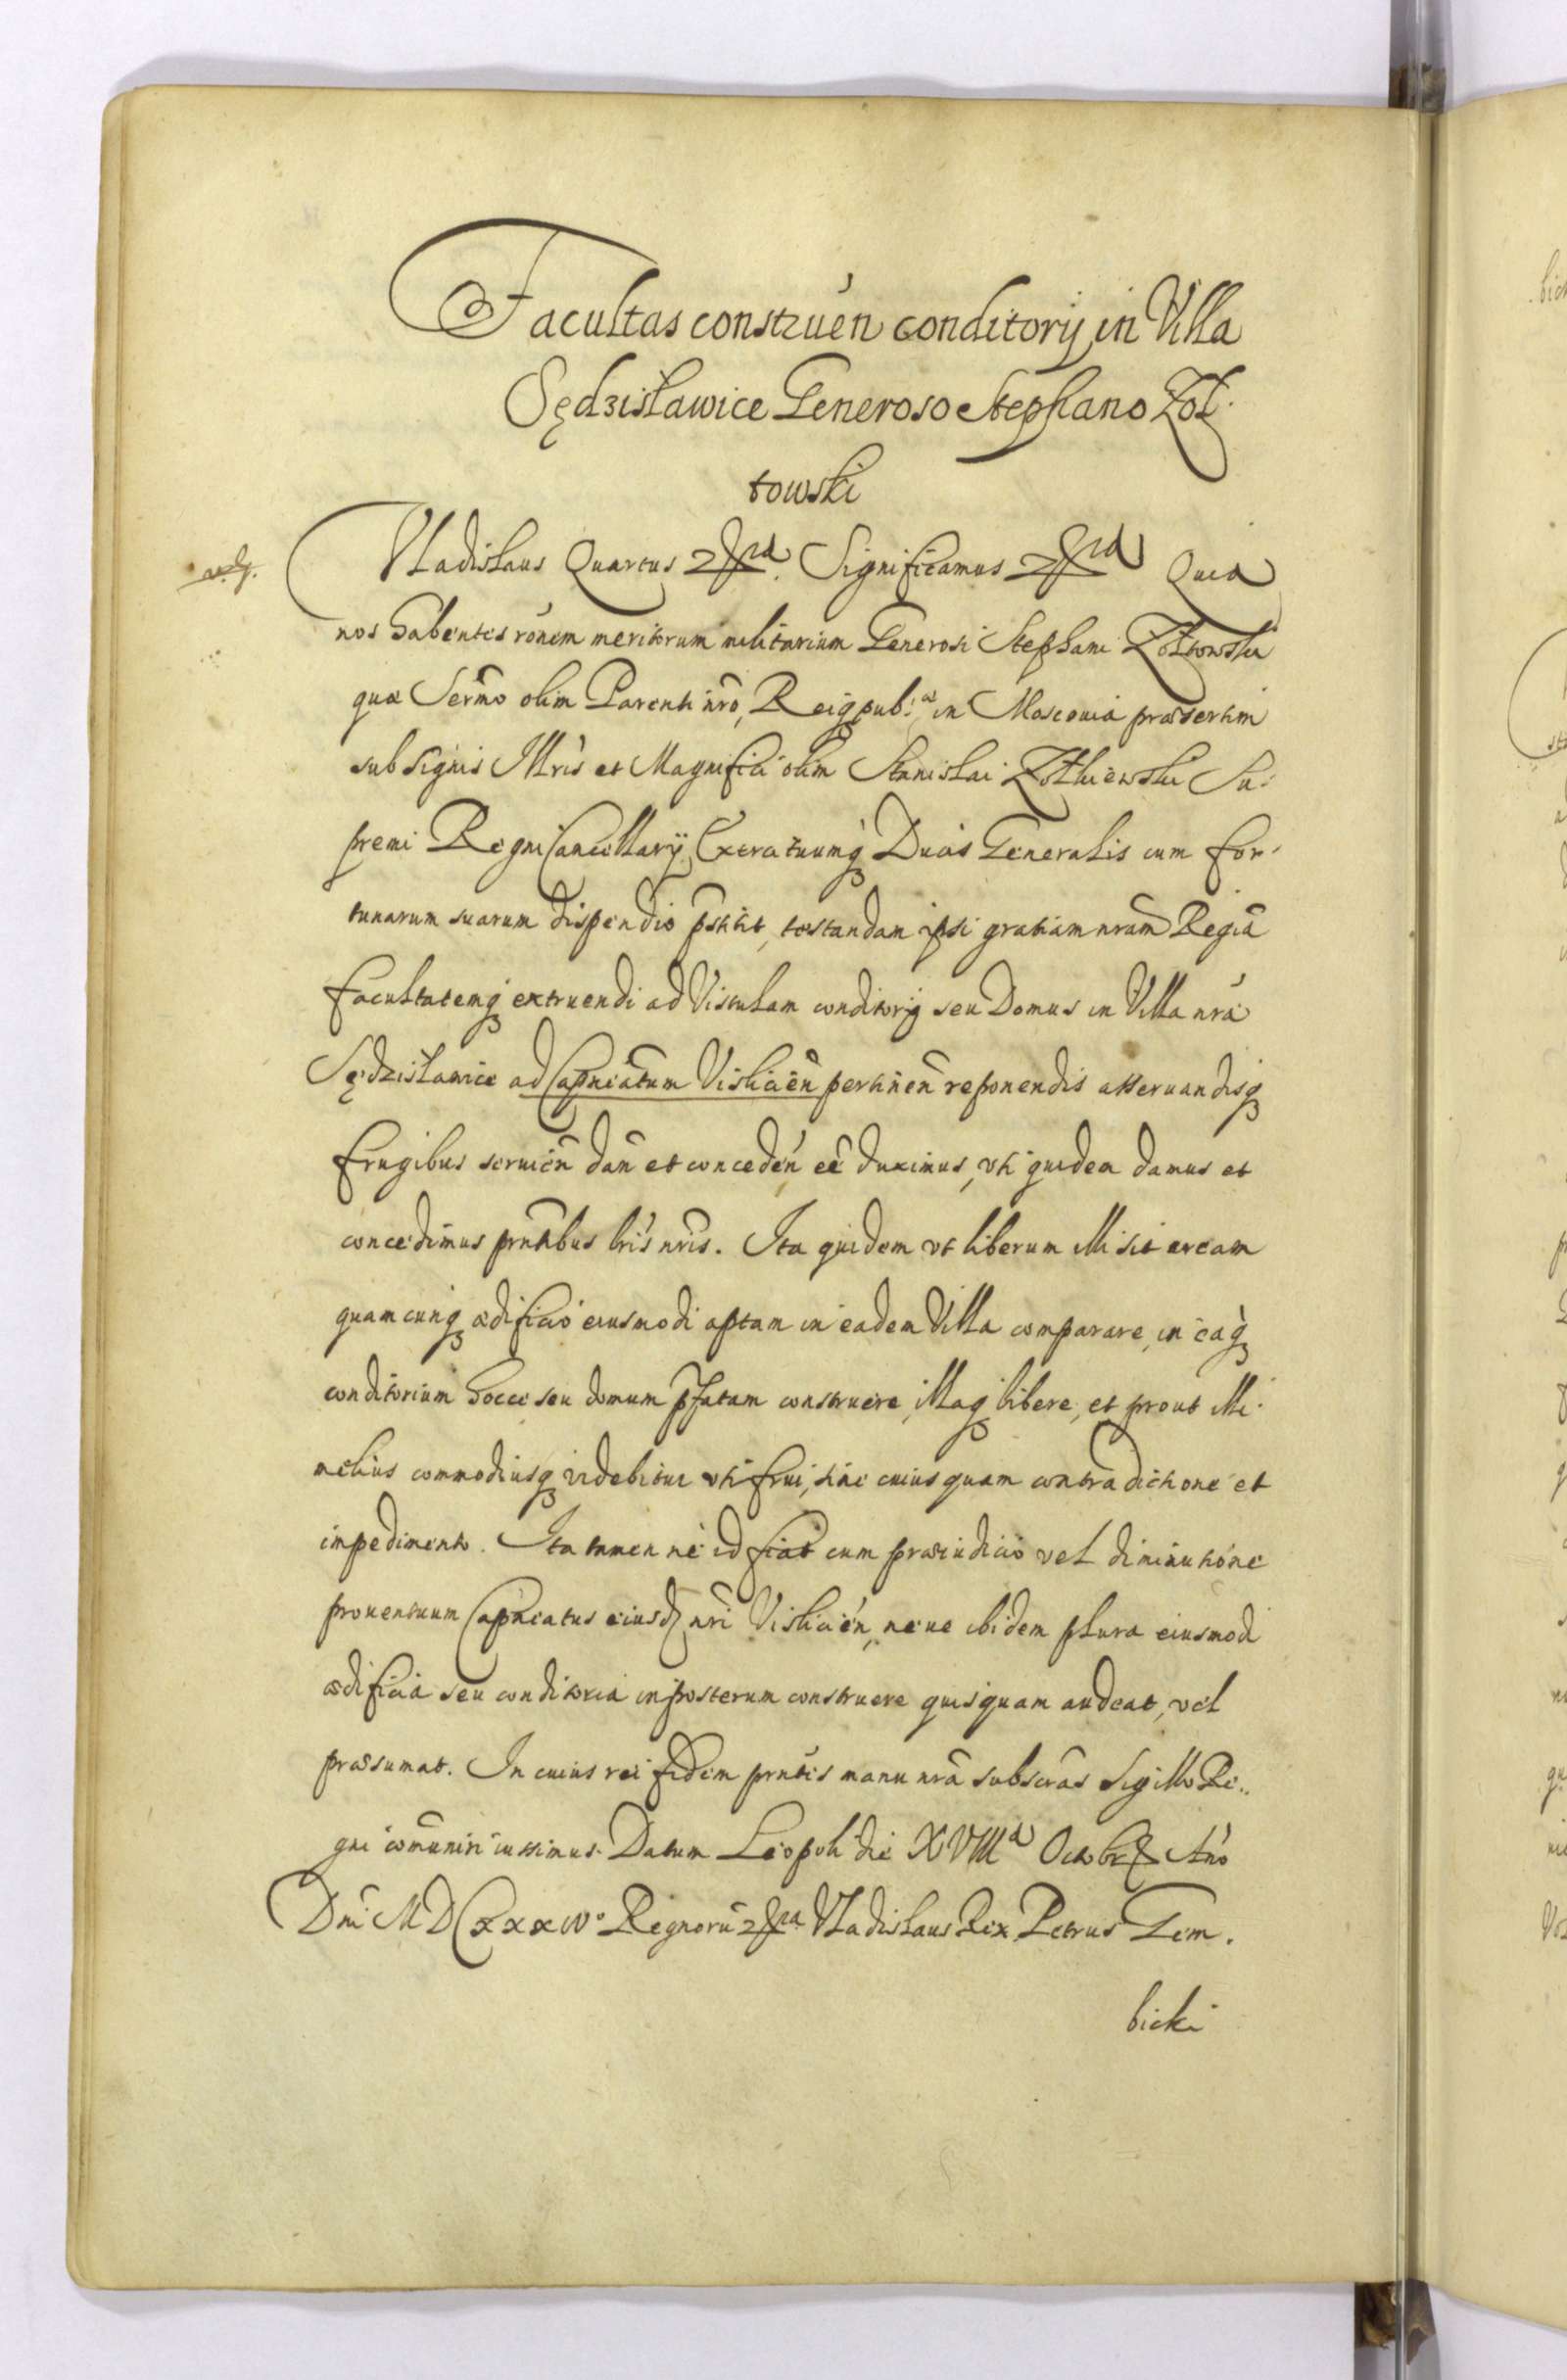 Facultas construen conditorij in Villa
Sędzisławice Generoso Stephano Zoł-
towski
Vladislaus Quartus etc. Significamus etc. Quia
nos habentes rõnem meritorum militarium Generosi Stephani Zołtowski
quæ Serm̃o olim Parenti nr̃o, Reiq pub:cæ in Moscouia præsertim
sub signis Illris et Magnifici olim Stanislai Zołkiewski Su-
premi Regni Cancellarij, Exercituumq Ducis Generalis cum for-
tunarum suarum dispendio p̃stitit, testandam ipsi gratiam nram̃ Regiã
facultatemq extruendi ad Vistulam conditorij seu Domus in Villa nrã
Sędzisławice ad Capneãtum Visliciẽn pertineñ reponendis asseruandisq
frugibus seruieñ dañ et concedeñ eẽ duximus, vti quidem damus et
concedimus prntibus lris nris. Ita quidem vt liberum illi sit aream
quamcunq ædificio eiusmodi aptam in eadem Villa comparare, in eaq
conditorium hocce seu domum p̃fatam construere, illaq libere, et prout illi
melius commodiusq videbitur vti frui, sine cuiusquam contradictione et
impedimento. Ita tamen ne id fiat cum præiudicio vel diminutione
prouentuum Capneatus eiusd nri Visliciẽn, neue ibidem plura eiusmodi
ædificia seu conditoria inposterum construere quisquam audeat, vel
præsumat. In cuius rei fidem prntes manu nrã subscras Sigillo Re-
gni com̃uniri iussimus. Datum Leopoli die XVIIIa Octobr Año
Dni MDCxxxivo Regnorũ etc. Vladislaus Rex, Petrus Gem-
bicki